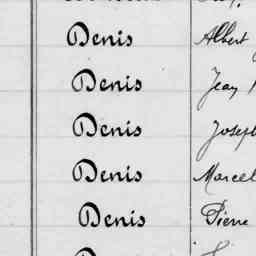 Denis Albert
Denis Jean
Denis Joseph
Denis Marcel
Denis Pierre